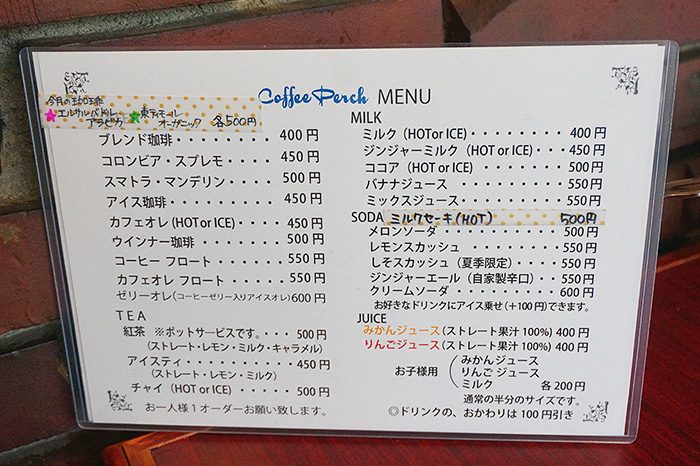 Coffee Perch MENU
今月の珈琲
★エルサルバドル アラビカ ★東ティモール オーガニック 各500円
ブレンド珈琲・・・・・・・・400円
コロンビア・スプレモ・・・・450円
スマトラ・マンデリン・・・・500円
アイス珈琲・・・・・・・・・450円
カフェオレ(HOT or ICE)・・・・450円
ウインナー珈琲・・・・・・・500円
コーヒー フロート・・・・・・550円
カフェオレ フロート・・・・・550円
ゼリーオレ(コーヒーゼリー入りアイスオレ)600円
TEA
紅茶 ※ポットサービスです。・・・500円
(ストレート・レモン・ミルク・キャラメル)
アイスティ・・・・・・・・・450円
(ストレート・レモン・ミルク)
チャイ(HOT or ICE)・・・・・500円
お一人様1オーダーお願い致します。
MILK
ミルク(HOT or ICE)・・・・・・・・400円
ジンジャーミルク(HOT or ICE)・・・450円
ココア(HOT or ICE)・・・・・・・・550円
バナナジュース・・・・・・・・・550円
ミックスジュース・・・・・・・・550円
SODA ミルクセーキ(HOT) 500円
メロンソーダ・・・・・・・・・・500円
レモンスカッシュ・・・・・・・・550円
しそスカッシュ(夏季限定)・・・・550円
ジンジャーエール(自家製辛口)・・550円
クリームソーダ・・・・・・・・・600円
お好きなドリンクにアイス乗せ(+100円)できます。
JUICE
みかんジュース(ストレート果汁100%)400円
りんごジュース(ストレート果汁100%)400円
お子様用
みかんジュース
りんごジュース
ミルク 各200円
通常の半分のサイズです。
◎ドリンクの、おかわりは100円引き